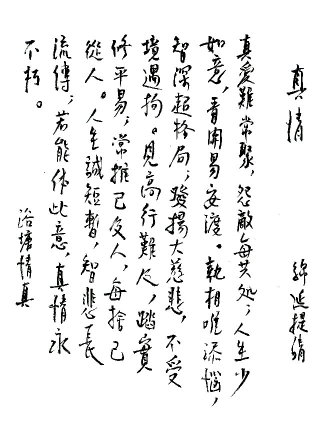 真情 延提
真愛難常聚，怨敵每共処；人生少
如意，看開易安渡。執相唯添惱，
智深超格局；發揚大慈悲，不受
境遇拘。見高行難及，踏實
修平易；常推己及人，每捨己
從人。人生誠短暫，智悲長
流傳；若能体此意，真情永
不朽。
塘情真